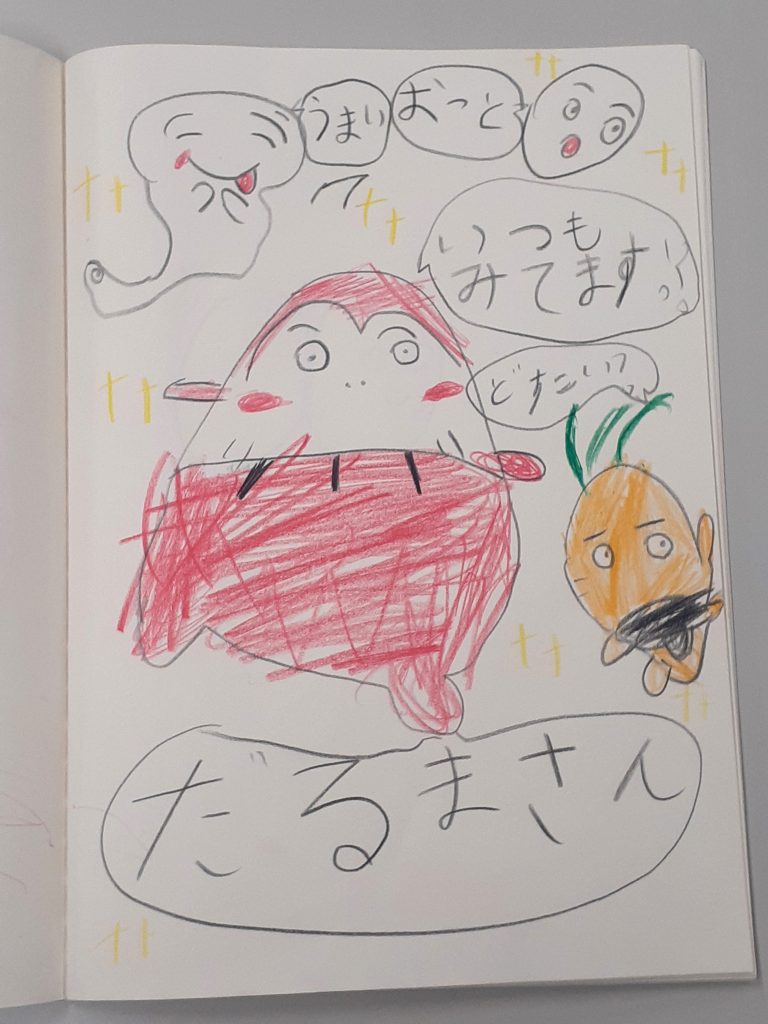 うまい
おっと
いつも
みてます!
どすこい
だるまさん